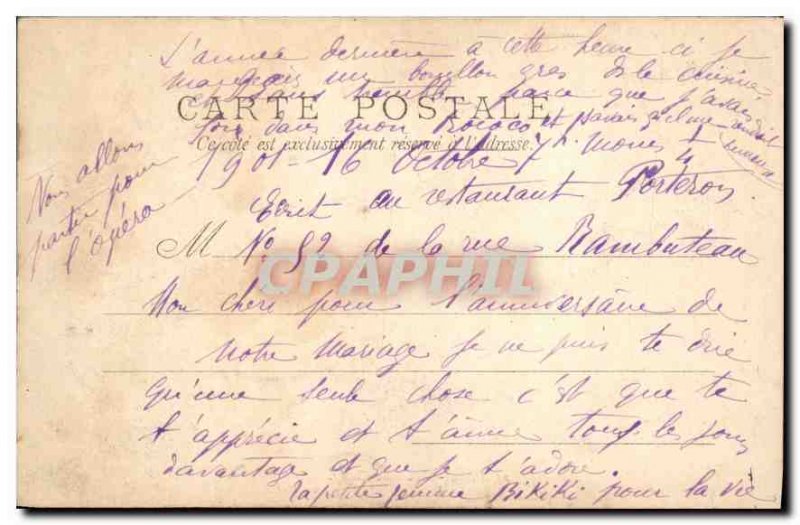 L'année dernière à cette heure ci je
mangeais un bouillon gras de la cuisine
parce que j'avais
CARTE POSTALE
froid dans mon Rococo et
Ce côté est exclusivement réservé à l'Adresse.
1901 - 16 Octobre 7h moins 1/4
Nous allons
partir pour
l'opéra
Ecrit au restaurant Porteron
M No 52 de la rue Rambuteau
CPAPHIL
Mon cheri pour l'anniversaire de
notre mariage je ne puis te dire
qu'une seule chose c'est que je
t'apprécie et t'aime tous les jours
davantage et que je t'adore.
ta petite femme BiKiKi pour la vie